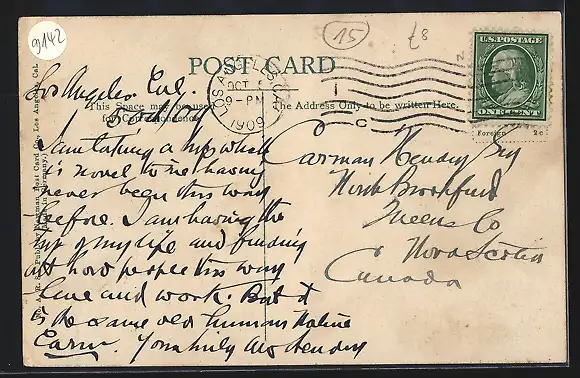 9142
15
£8
POST CARD
U.S. POSTAGE
ONE CENT
Foreign 2c
LOS ANGELES, CAL.
OCT 5
9-PM
1909
This Space may be used
for Correspondence
The Address Only to be written Here.
Los Angeles Cal.
I am taking a trip which
is novel to me having
never been this way
before. I am having the
trip of my life and finding
out how people this way
live and work. But it
is the same old human nature
Yours truly
Carman Hendry Esq
North Brookfield
Queens Co
Nova Scotia
Canada